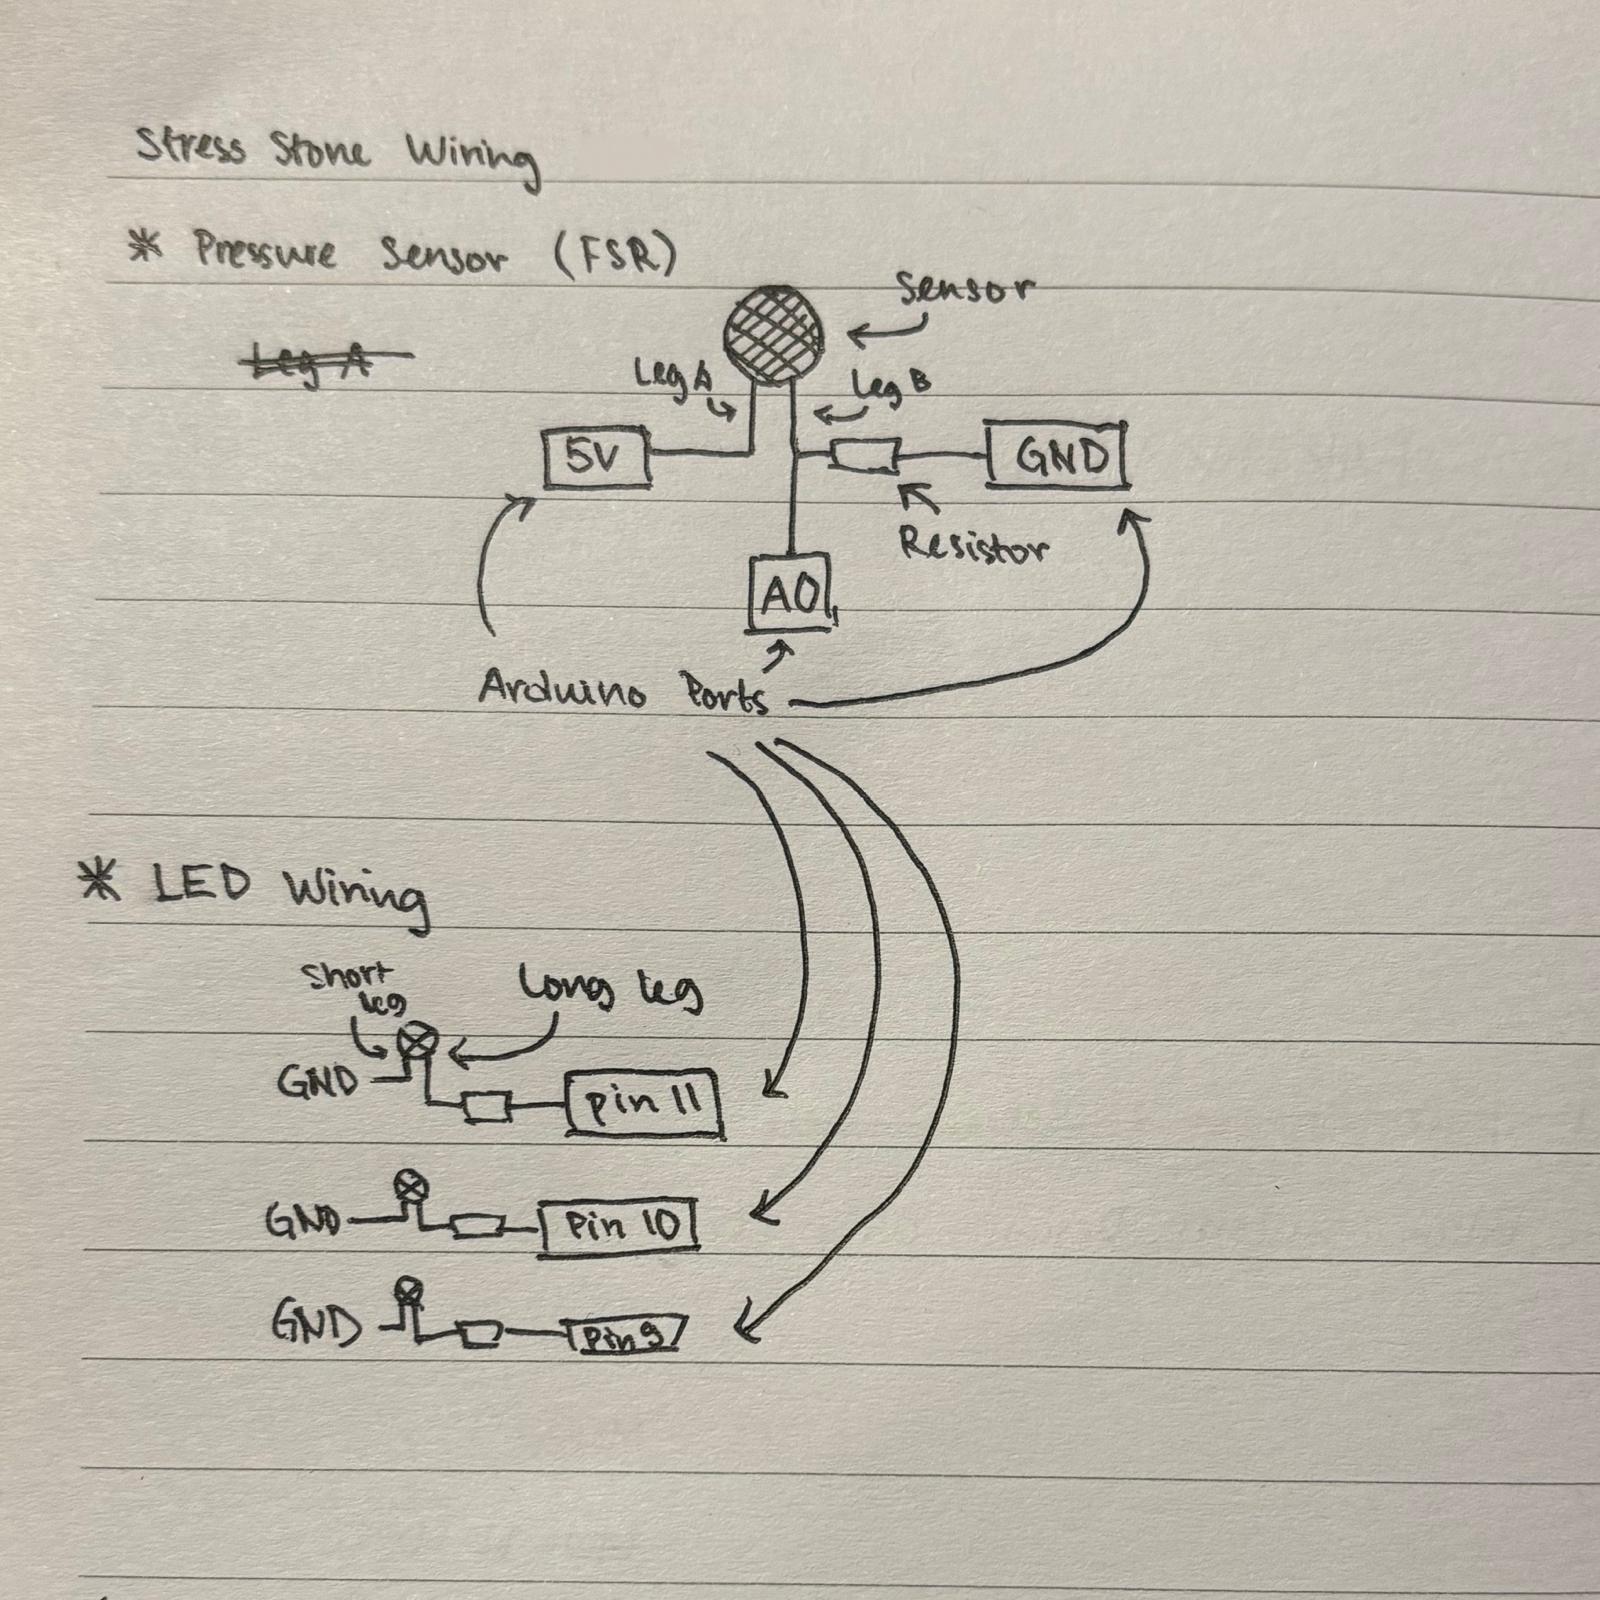 Stress Stone Wiring
* Pressure Sensor (FSR)
Sensor
Leg A
Leg A
Leg B
5V
GND
Resistor
A0
Arduino Ports
* LED Wiring
Short
leg
Long leg
GND
pin 11
GND
Pin 10
GND
Pin 9